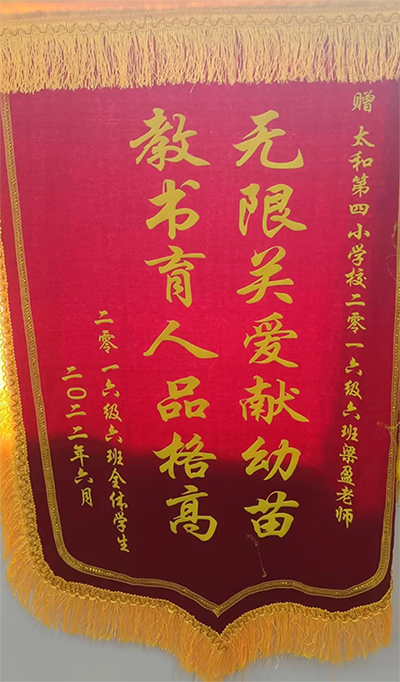 赠 太和第四小学校二零一六级六班梁盈老师
无限关爱献幼苗
教书育人品格高
二零一六级六班全体学生
二〇二二年六月